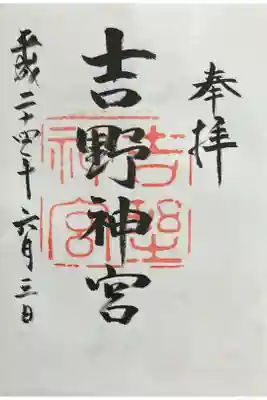 奉拝
吉野神宮
平成二十四年六月三日
吉野神宮